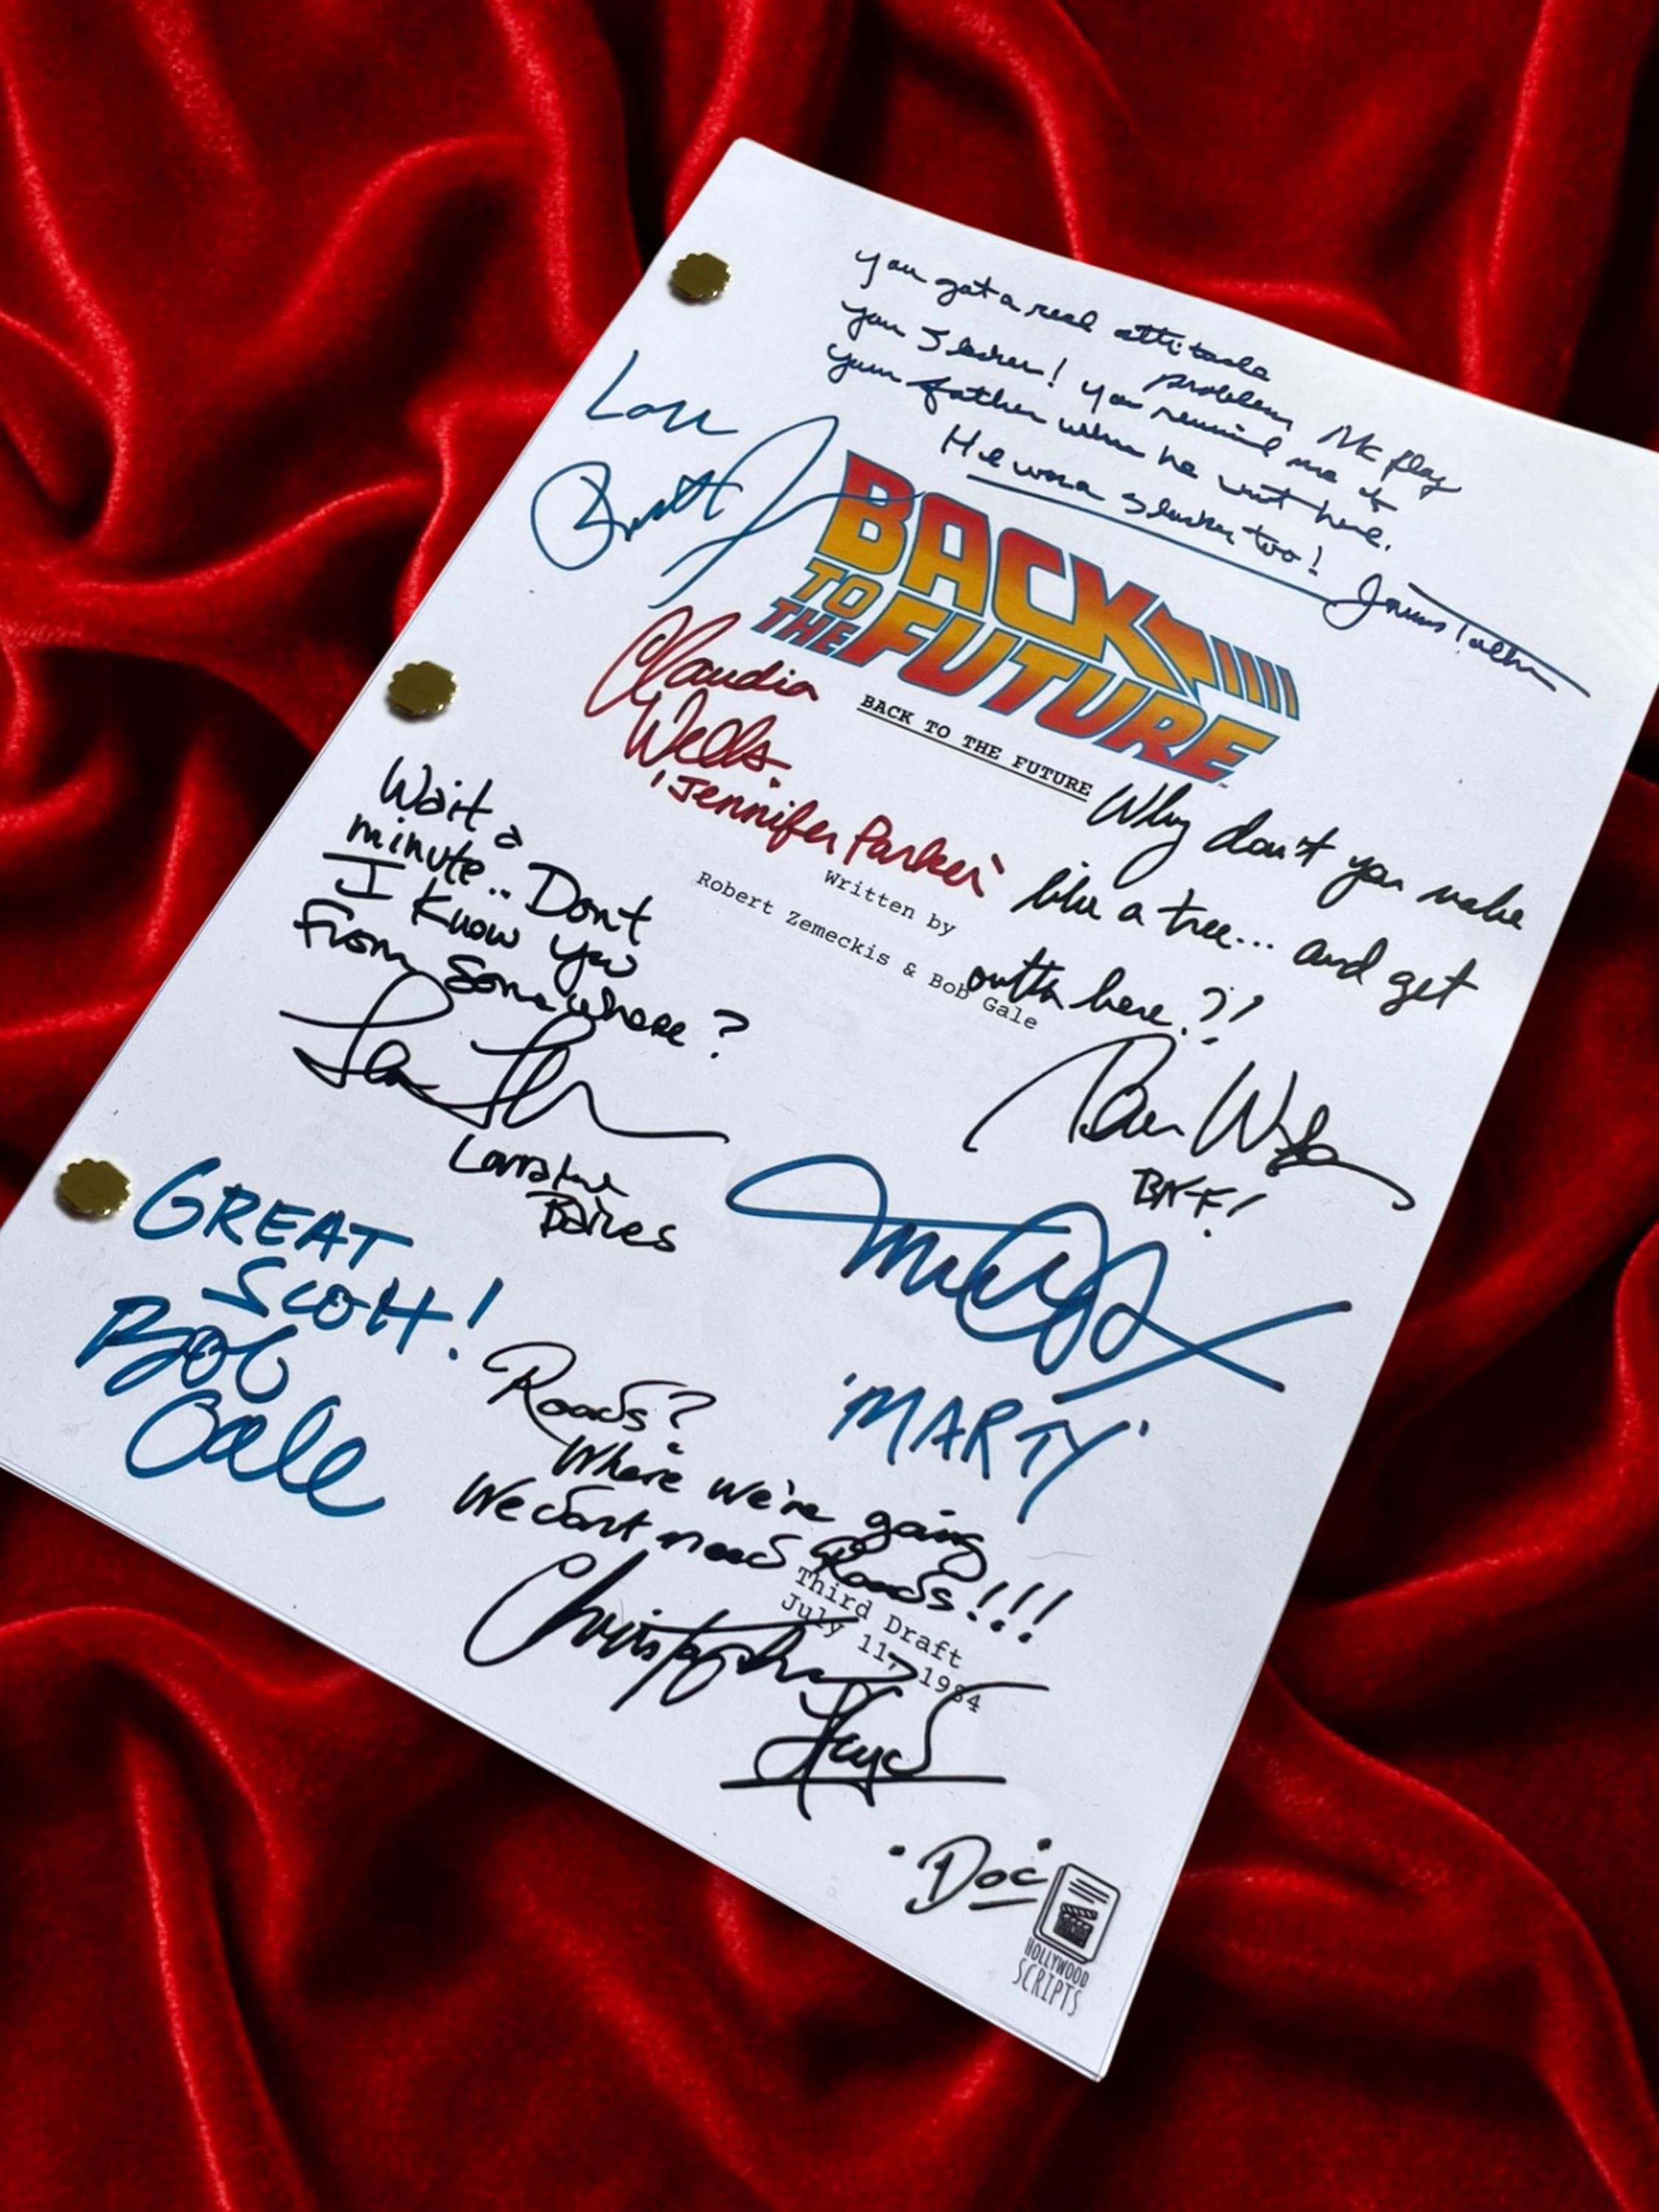 you got a real attitude
problem, McFlay
you Slacker! you remind me of
your father when he went here.
He was a slacker too!
James Tolkan
Love
BACK
TO
THE FUTURE
Claudia
Wells.
'Jennifer Parker'
BACK TO THE FUTURE
Why don't you make
like a tree... and get
outta here?!
Written by
Robert Zemeckis & Bob Gale
Wait a
minute.. Dont
I know you
from somewhere?
Lorraine
Baines
BIFF!
GREAT
SCOTT!
Bob
Gale
'MARTY'
Roads?
Where we're going
We dont need Roads!!!
Third Draft
July 11, 1984
Christopher
Lloyd
"Doc"
HOLLYWOOD
SCRIPTS